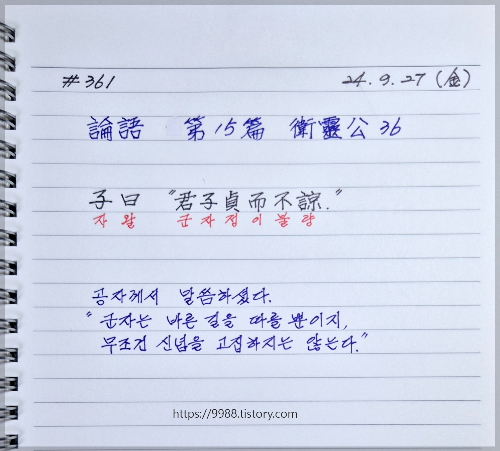 #361
24.9.27 (金)
論語 第15篇 衛靈公 36
子曰 "君子貞而不諒."
자왈 군자정이불량
공자께서 말씀하셨다.
"군자는 바른 길을 따를 뿐이지,
무조건 신념을 고집하지는 않는다."
https://9988.tistory.com